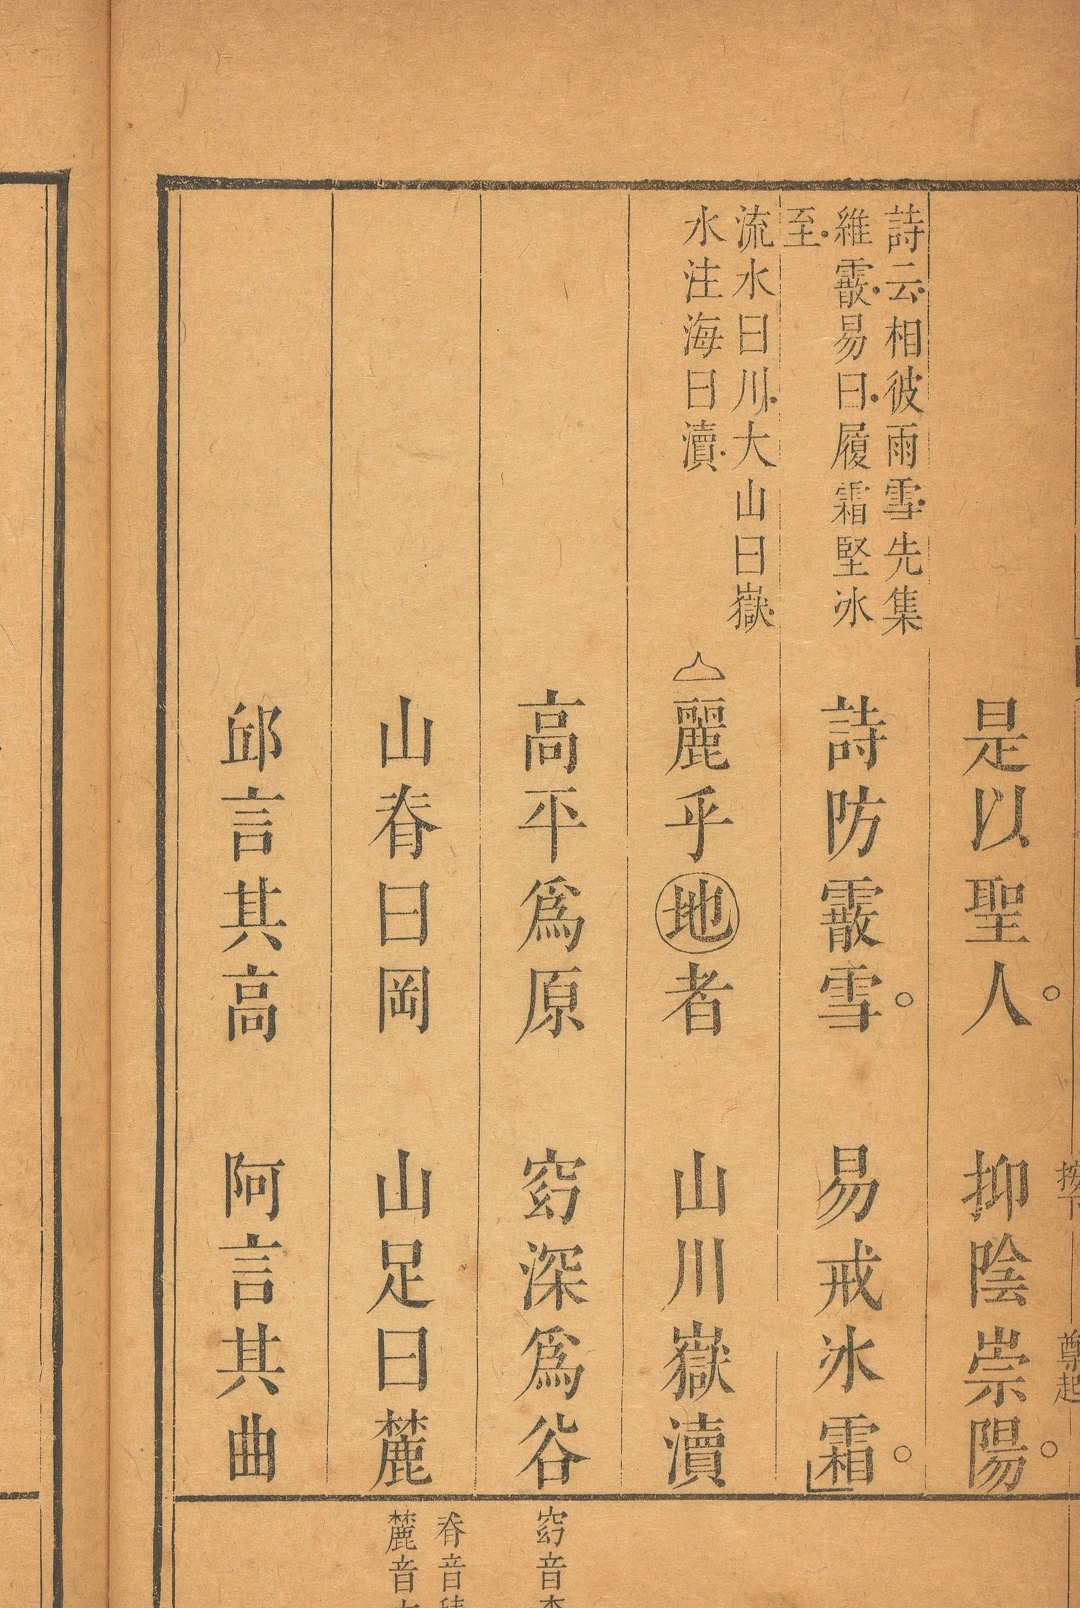 是以聖人。 抑陰崇陽。
詩云相彼雨雪先集
維霰易曰履霜堅冰
至
詩防霰雪。 易戒冰霜。
流水曰川大山曰嶽
水注海曰瀆
麗乎地者 山川嶽瀆
高平爲原 窈深爲谷
山脊曰岡 山足曰麓
邱言其高 阿言其曲
窈音
脊音
麓音